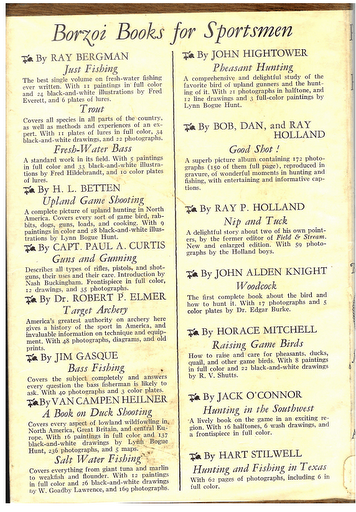 Borzoi Books for Sportsmen
By RAY BERGMAN
Just Fishing
The best single volume on fresh-water fishing
ever written. With 11 paintings in full color
and 24 black-and-white illustrations by Fred
Everett, and 6 plates of lures.
Trout
Covers all species in all parts of the country,
as well as methods and experiences of an ex-
pert. With 11 plates of lures in full color, 34
black-and-white drawings, and 22 photographs.
Fresh-Water Bass
A standard work in its field. With 5 paintings
in full color and 33 black-and-white illustra-
tions by Fred Hildebrandt, and 10 color plates
of lures.
By H. L. BETTEN
Upland Game Shooting
A complete picture of upland hunting in North
America. Covers every sort of game bird, rab-
bits, dogs, guns, loads, and cooking. With 9
paintings in color and 28 black-and-white illus-
trations by Lynn Bogue Hunt.
By CAPT. PAUL A. CURTIS
Guns and Gunning
Describes all types of rifles, pistols, and shot-
guns, their uses and their care. Introduction by
Nash Buckingham. Frontispiece in full color,
12 drawings, and 35 photographs.
By Dr. ROBERT P. ELMER
Target Archery
America's greatest authority on archery here
gives a history of the sport in America, and
invaluable information on technique and equip-
ment. With 48 photographs, diagrams, and old
prints.
By JIM GASQUE
Bass Fishing
Covers the subject completely and answers
every question the bass fisherman is likely to
ask. With 40 photographs and 3 color plates.
By VAN CAMPEN HEILNER
A Book on Duck Shooting
Covers every aspect of lowland wildfowling in
North America, Great Britain, and central Eu-
rope. With 16 paintings in full color and 137
black-and-white drawings by Lynn Bogue
Hunt, 236 photographs, and 5 maps.
Salt Water Fishing
Covers everything from giant tuna and marlin
to weakfish and flounder. With 12 paintings
in full color and 26 black-and-white drawings
by W. Goadby Lawrence, and 169 photographs.
By JOHN HIGHTOWER
Pheasant Hunting
A comprehensive and delightful study of the
favorite bird of upland gunners and the hunt-
ing of it. With 21 photographs in halftone, and
12 line drawings and 3 full-color paintings by
Lynn Bogue Hunt.
By BOB, DAN, and RAY
HOLLAND
Good Shot!
A superb picture album containing 172 photo-
graphs (150 of them full page), reproduced in
gravure, of wonderful moments in hunting and
fishing, with entertaining and informative cap-
tions.
By RAY P. HOLLAND
Nip and Tuck
A delightful story about two of his own point-
ers, by the former editor of Field & Stream.
New and enlarged edition. With 59 photo-
graphs by the Holland boys.
By JOHN ALDEN KNIGHT
Woodcock
The first complete book about the bird and
how to hunt it. With 17 photographs and 5
color plates by Dr. Edgar Burke.
By HORACE MITCHELL
Raising Game Birds
How to raise and care for pheasants, ducks,
quail, and other game birds. With 8 paintings
in full color and 22 black-and-white drawings
by R. V. Shutts.
By JACK O'CONNOR
Hunting in the Southwest
A lively book of the game in an exciting re-
gion. With 16 halftones, 6 wash drawings, and
a frontispiece in full color.
By HART STILWELL
Hunting and Fishing in Texas
With 62 pages of photographs, including 6 in
full color.